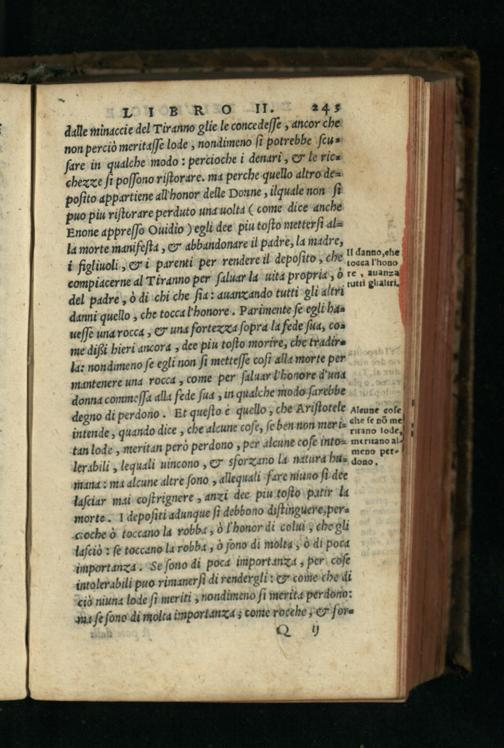 LIBRO II. 245
dalle minaccie del Tiranno glie le concedesse, ancor che
non perciò meritasse lode, nondimeno si potrebbe scu-
sare in qualche modo: percioche i denari, & le ric-
chezze si possono ristorare. ma perche quello altro de-
posito appartiene all'honor delle Donne, ilquale non si
puo piu ristorare perduto una uolta (come dice anche
Enone appresso Ouidio) egli dee piu tosto mettersi al-
la morte manifesta, & abbandonare il padre, la madre,
i figliuoli, & i parenti per rendere il deposito, che
compiacerne al Tiranno per saluar la uita propria, ò
del padre, ò di chi che sia: auanzando tutti gli altri
danni quello, che tocca l'honore. Parimente se egli ha-
uesse una rocca, & una fortezza sopra la fede sua, co-
me dißi hieri ancora, dee piu tosto morire, che tradir-
la: nondimeno se egli non si mettesse così alla morte per
mantenere una rocca, come per saluar l'honore d'una
donna commessa alla fede sua, in qualche modo sarebbe
degno di perdono. Et questo è quello, che Aristotele
intende, quando dice, che alcune cose, se ben non meri-
tan lode, meritan però perdono, per alcune cose into-
lerabili, lequali uincono, & sforzano la natura hu-
mana: ma alcune altre sono, allequali fare niuno si dee
lasciar mai costrignere, anzi dee piu tosto patir la
morte. I depositi adunque si debbono distinguere, per-
cioche ò toccano la robba, ò l'honor di colui, che gli
lasciò: se toccano la robba, ò sono di molta, ò di poca
importanza. Se sono di poca importanza, per cose
intolerabili puo rimanersi di rendergli: & come che di
ciò niuna lode si meriti, nondimeno si merita perdono:
ma se sono di molta importanza; come rocche, & for-
Q ij
Il danno, che
tocca l'hono
re, auanza
tutti gli altri.
Alcune cose
che se nō me
ritano lode,
meritano al-
meno per-
dono.